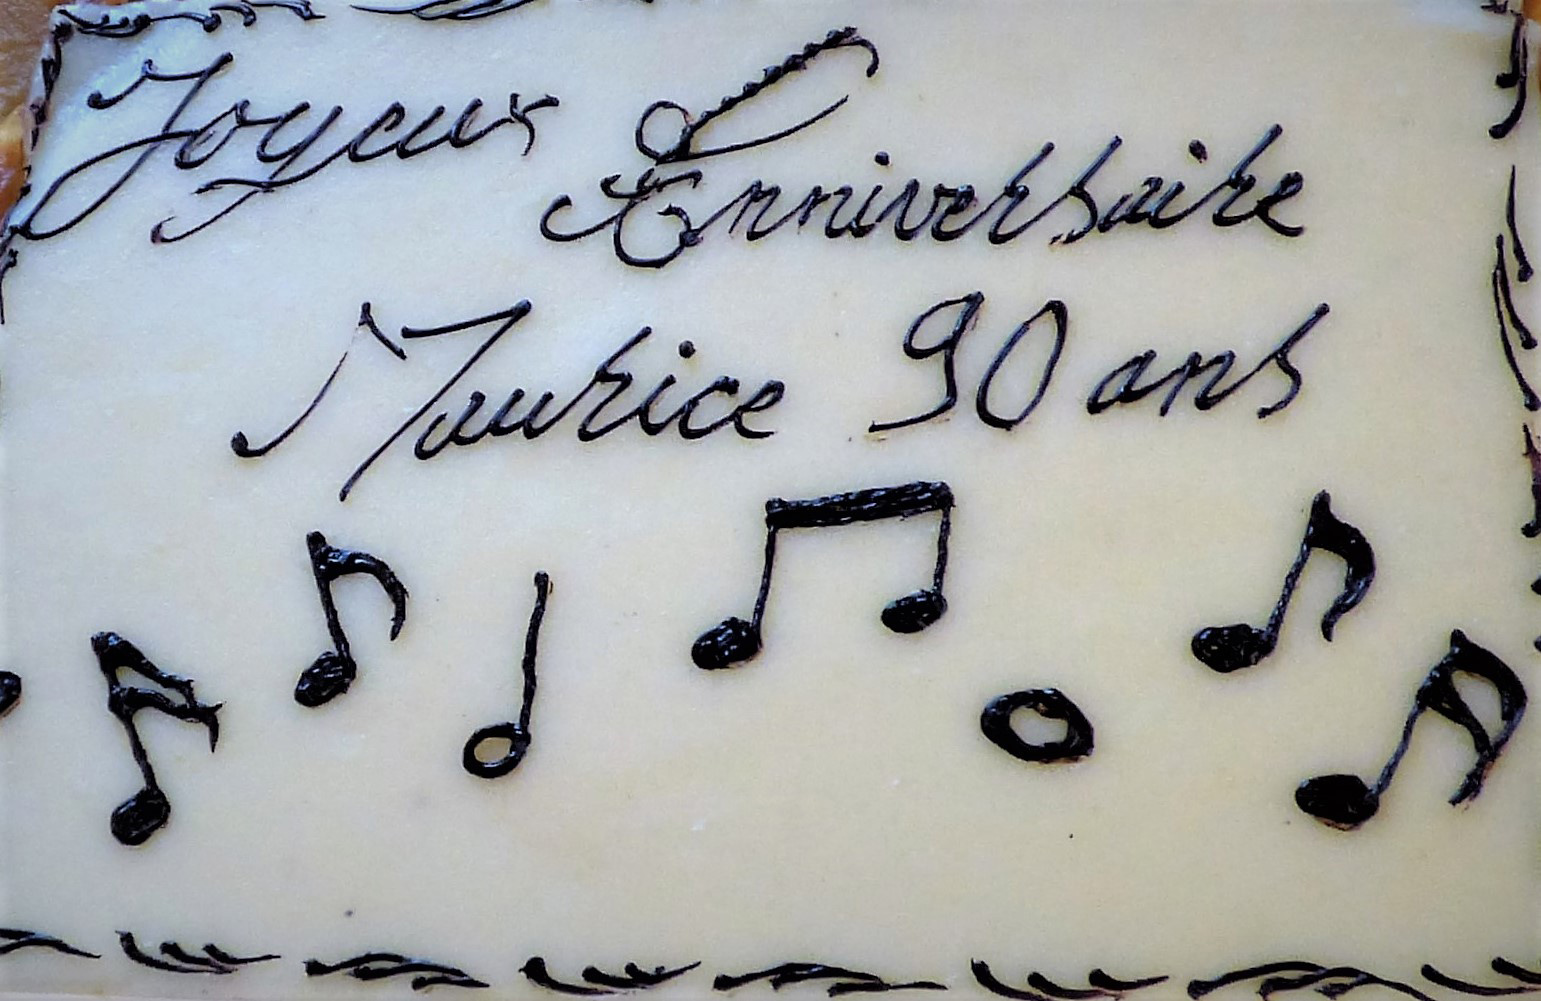 Joyeux
Anniversaire
Maurice 90 ans